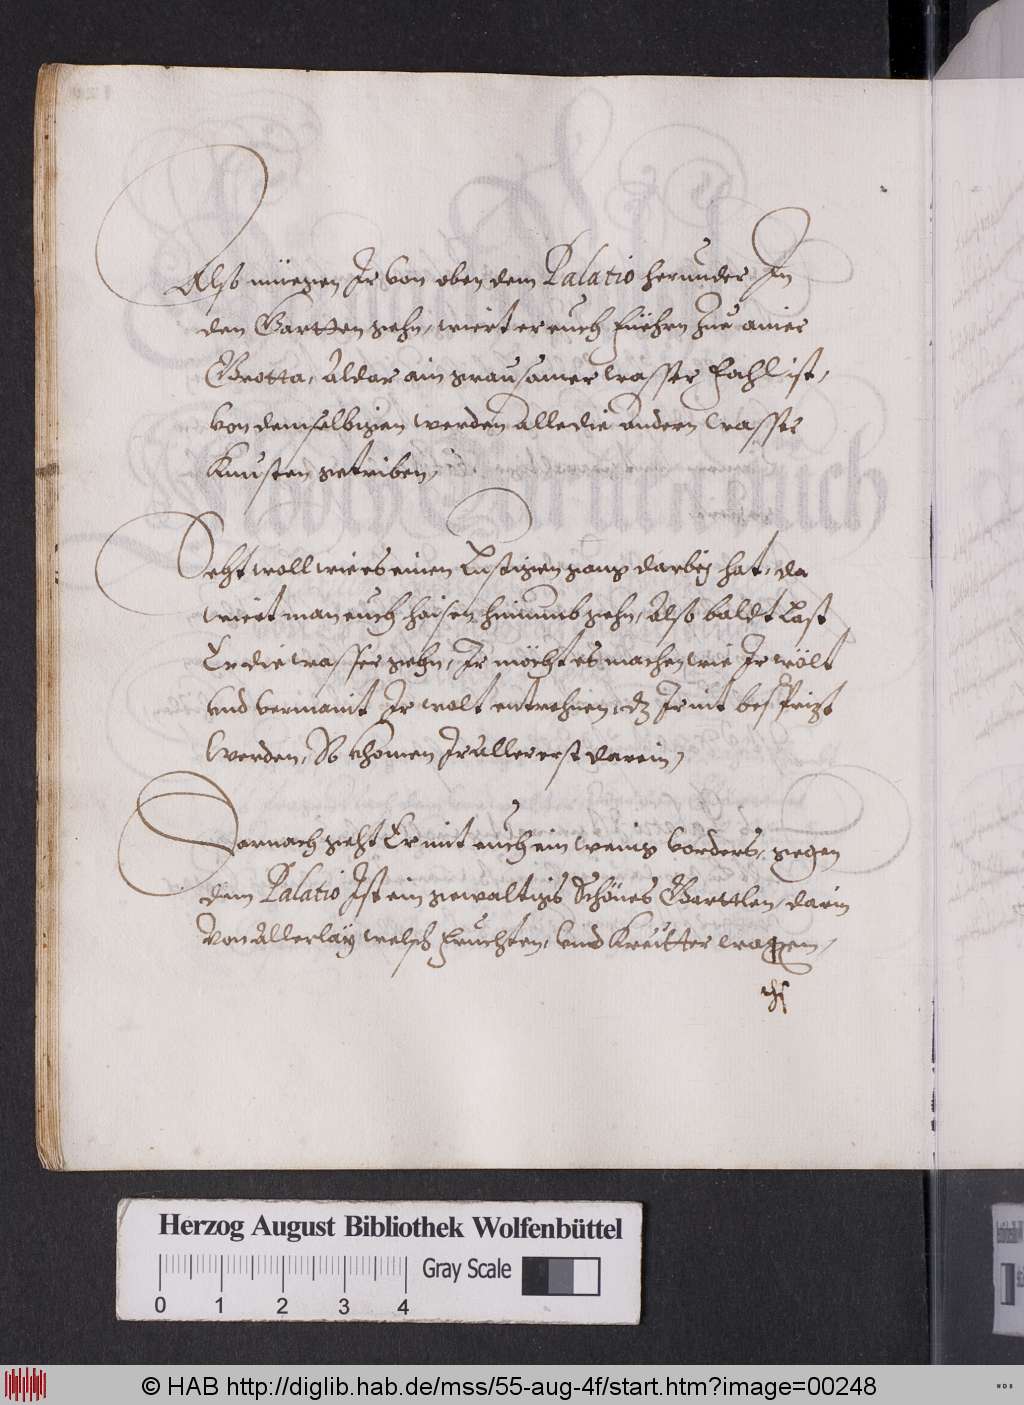 Also müessen Ir von oben dem Palatio herunder In
den Gartten gehn, wiert er euch füehrn zue ainer
Grotta, Aldar ain grausamer wasser fahl ist,
von demselbigen werden alle die andern wasser
Kunsten getriben,
Secht woll wie es einen Lustigen gang darbej hat, da
wiert man euch haisen hinumb gehn, Also baldt Last
Er die wasser gehn, Ir möcht es machen wie Ir wölt
und vermaint Ir wolt entrohnen, dz Ir nit besprizt
werden, So khomen Ir aller erst darein,
Darnach geht Er mit euch ein wenig vorders, gegen
dem Palatio Ist ein gewaltigs Schönes Garttlen, darin
von Allerlaÿ welsch fruchten, und Kreütter wagsen,
Herzog August Bibliothek Wolfenbüttel
Gray Scale
0 1 2 3 4
© HAB http://diglib.hab.de/mss/55-aug-4f/start.htm?image=00248